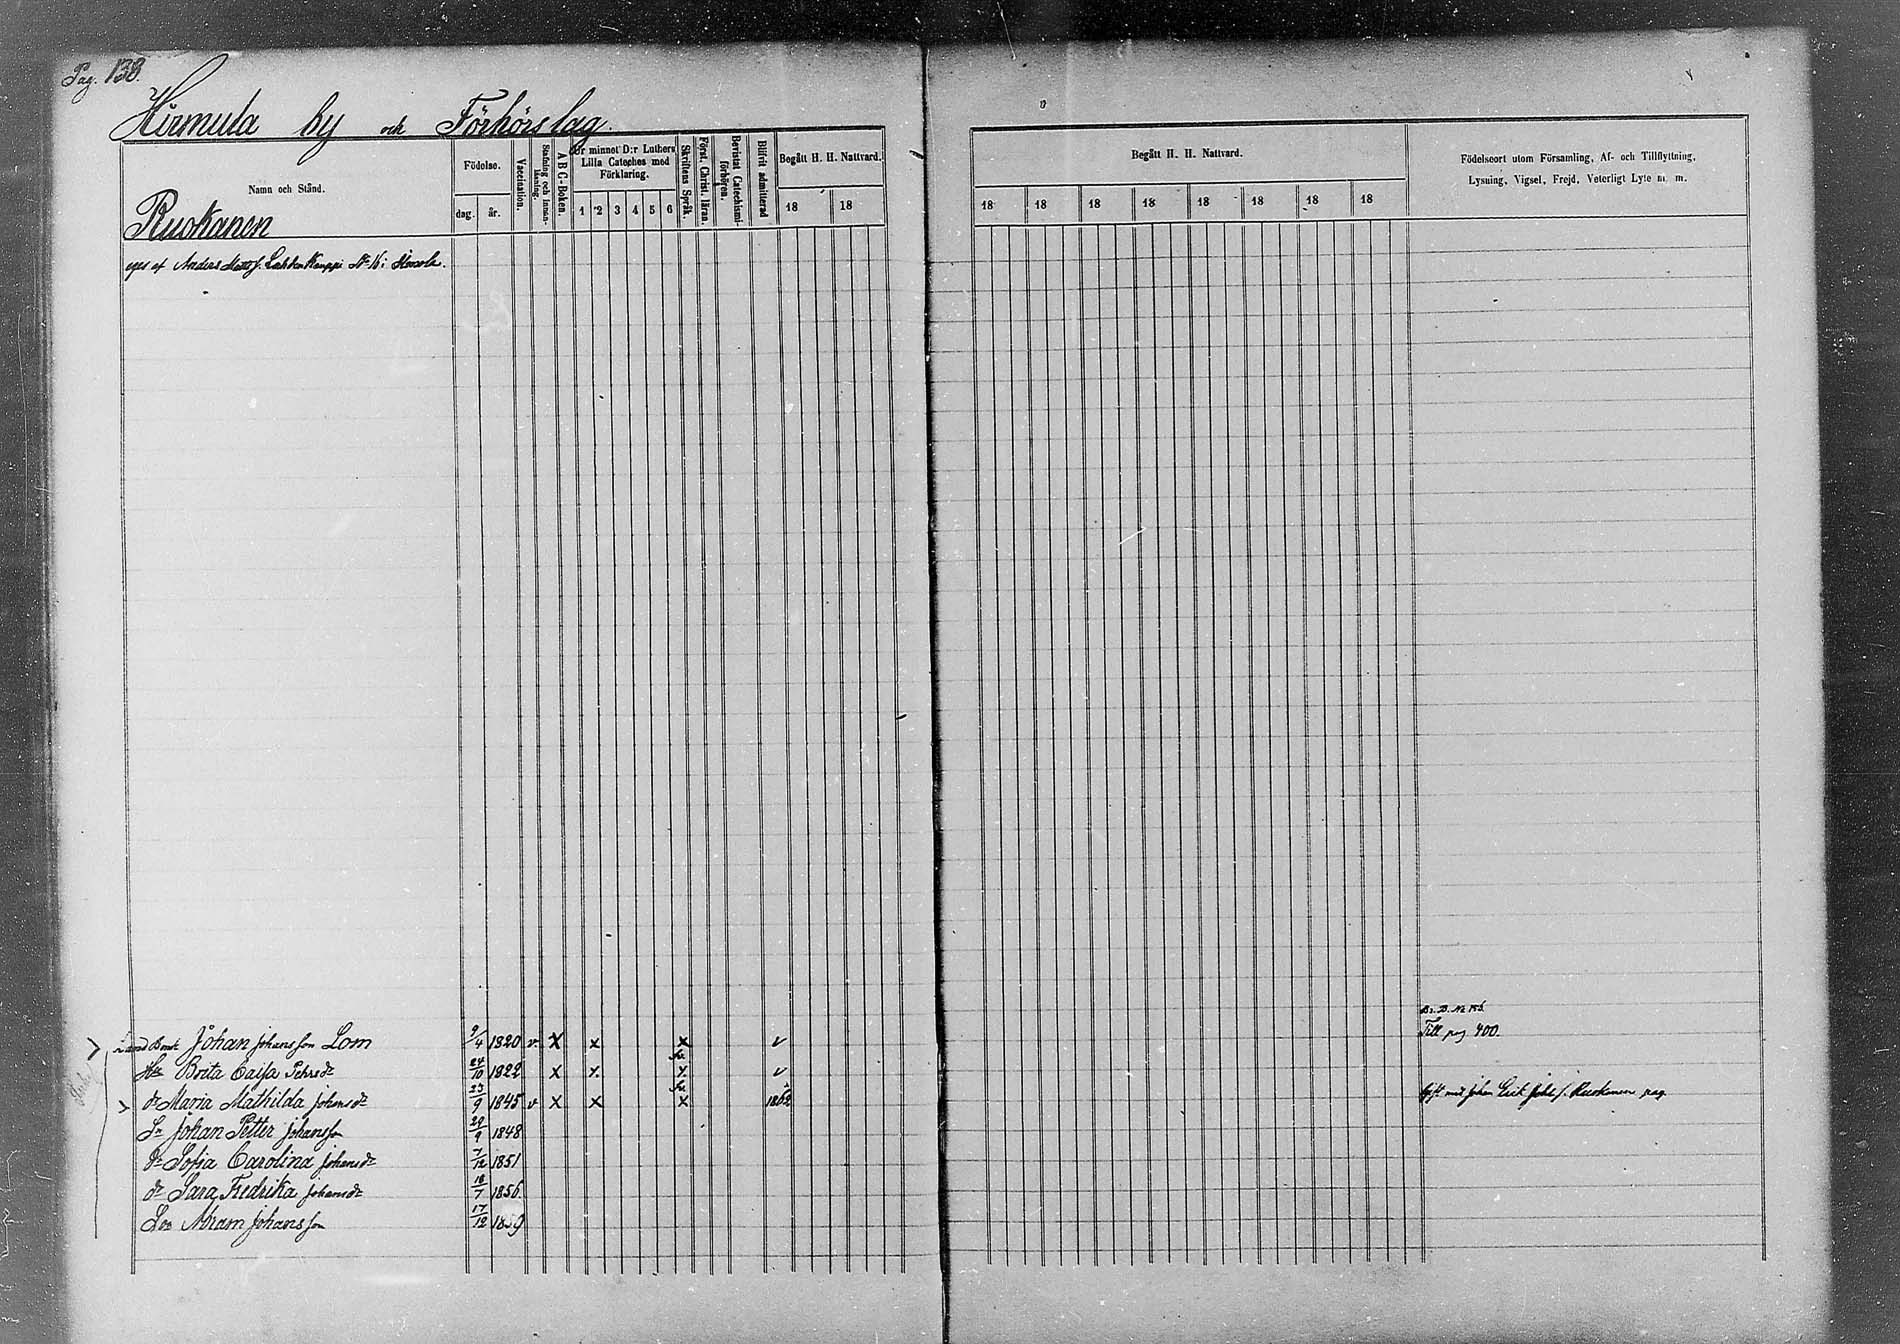 Pag. 138.
Hirmula by och Förhörslag.
Namn och Stånd.
Födelse.
dag. år.
Vaccination.
Stafning och Innan-läsning.
A B C-Boken.
Ur minnet D:r Luthers Lilla Cateches med Förklaring.
1 2 3 4 5 6
Skriftens Språk.
Först. Christ. läran.
Bevistat Catechismi-förhören.
Blifvit admitterad
Begått H. H. Nattvard.
18 18
Begått H. H. Nattvard.
18 18 18 18 18 18 18 18
Födelseort utom Församling, Af- och Tillflyttning,
Lysning, Vigsel, Frejd, Veterligt Lyte m. m.
Ruokanen
eges af Anders Matts s. Kauppi No 16 i
Johan Johansson Lom 9/4 1820 v. x x x v Till pag 400.
Brita Caisa Pehrsdr 24/10 1822 x x. x. v
dr Maria Mathilda Johansdr 23/9 1845 v x x x 1862 gift med Johan Erik Joh. s. Ruokanen pag.
Sn Johan Petter Johansson 29/9 1848
dr Sofia Carolina Johansdr 7/12 1851
dr Sara Fredrika Johansdr 18/7 1856.
Son Abram Johansson 17/12 1859